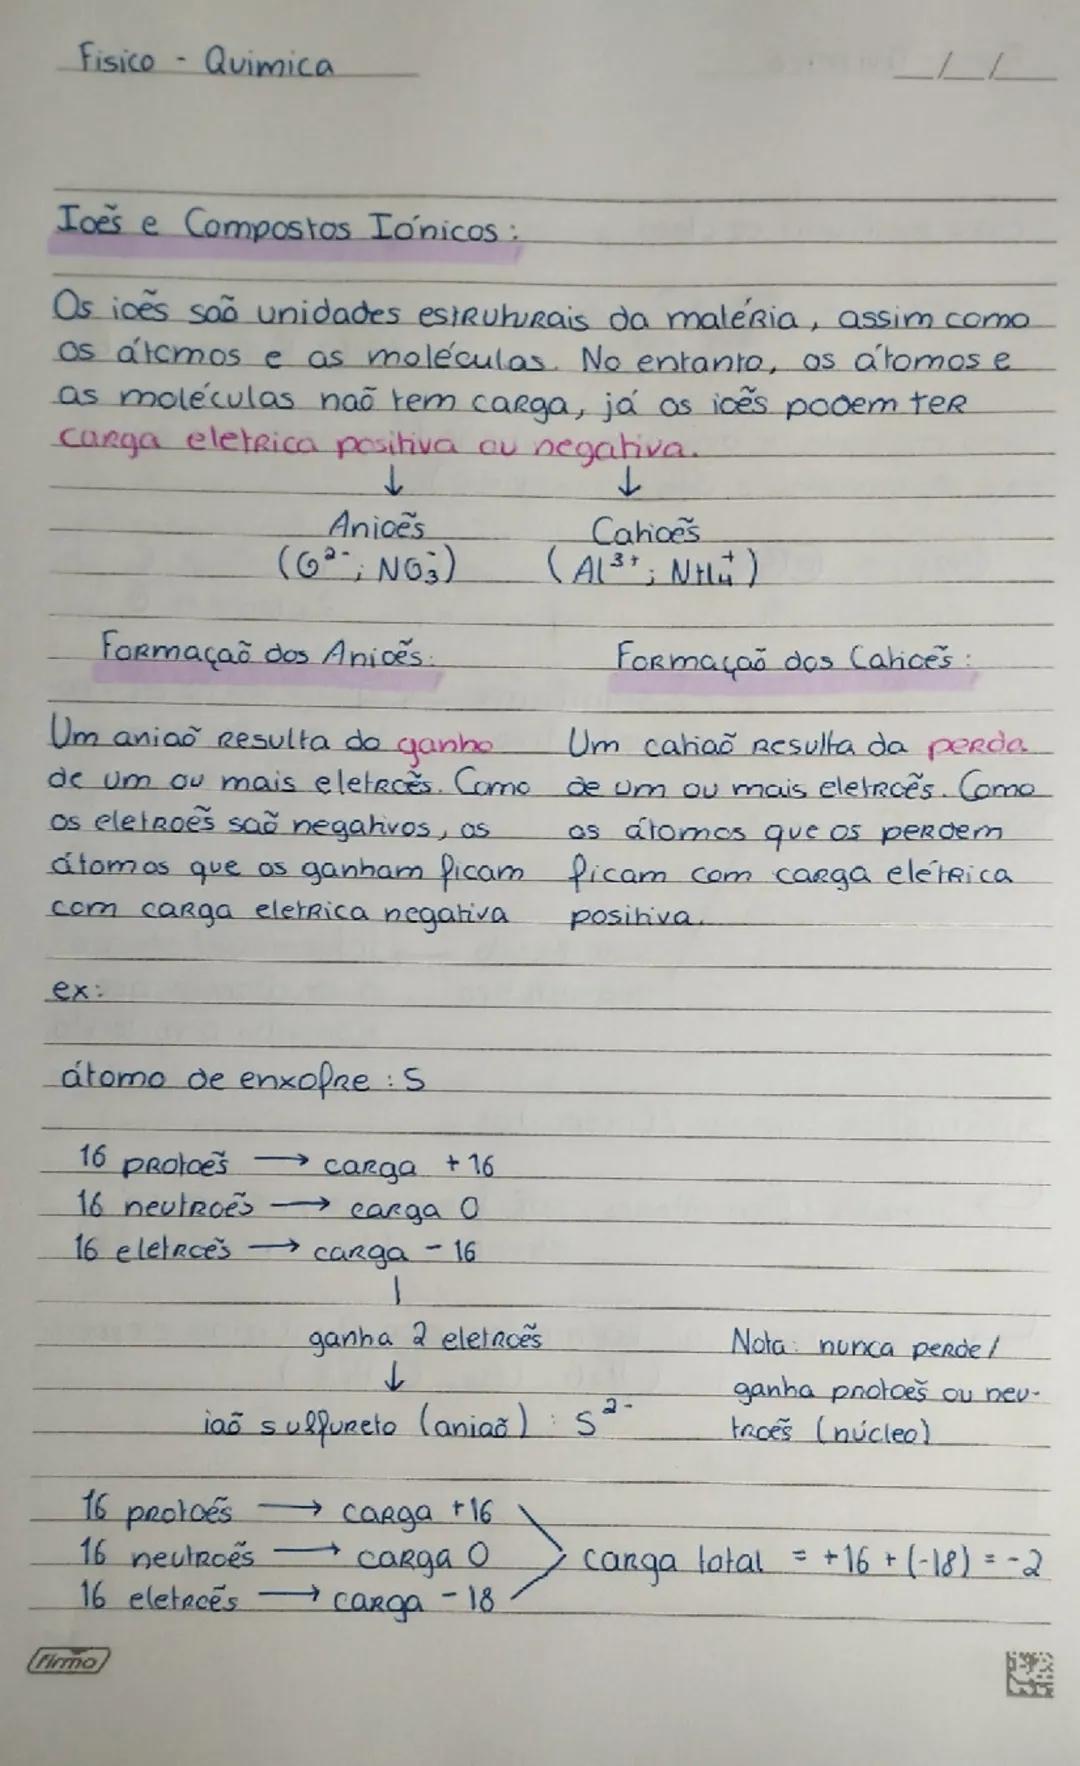 Fisico - Quimica
__/__/__
Ioẽs e Compostos Iónicos:
Os ioẽs saõ unidades estruturais da matéria, assim como
os átomos e as moléculas. No entanto, os átomos e
as moléculas naõ tem carga, já os ioẽs podem ter
carga eletrica positiva ou negativa.
↓ ↓
Anioẽs Catioẽs
(O²⁻; NO₃⁻) (Al³⁺; NH₄⁺)
Formaçaõ dos Anioẽs: Formaçaõ dos Catioẽs:
Um aniaõ resulta do ganho
de um ou mais eletroẽs. Como
os eletroẽs saõ negativos, os
átomos que os ganham ficam
com carga eletrica negativa
Um catiaõ resulta da perda
de um ou mais eletroẽs. Como
os átomos que os perdem
ficam com carga elétrica
positiva.
ex:
átomo de enxofre : S
16 protoẽs → carga +16
16 neutroẽs → carga 0
16 eletroẽs → carga - 16
ganha 2 eletroẽs
↓
iaõ sulfureto (aniaõ) : S²⁻
Nota: nunca perde/
ganha protoẽs ou neu-
troẽs (núcleo)
16 protoẽs → carga +16
16 neutroẽs → carga 0 > carga total = +16 + (-18) = -2
16 eletroẽs → carga - 18
firmo